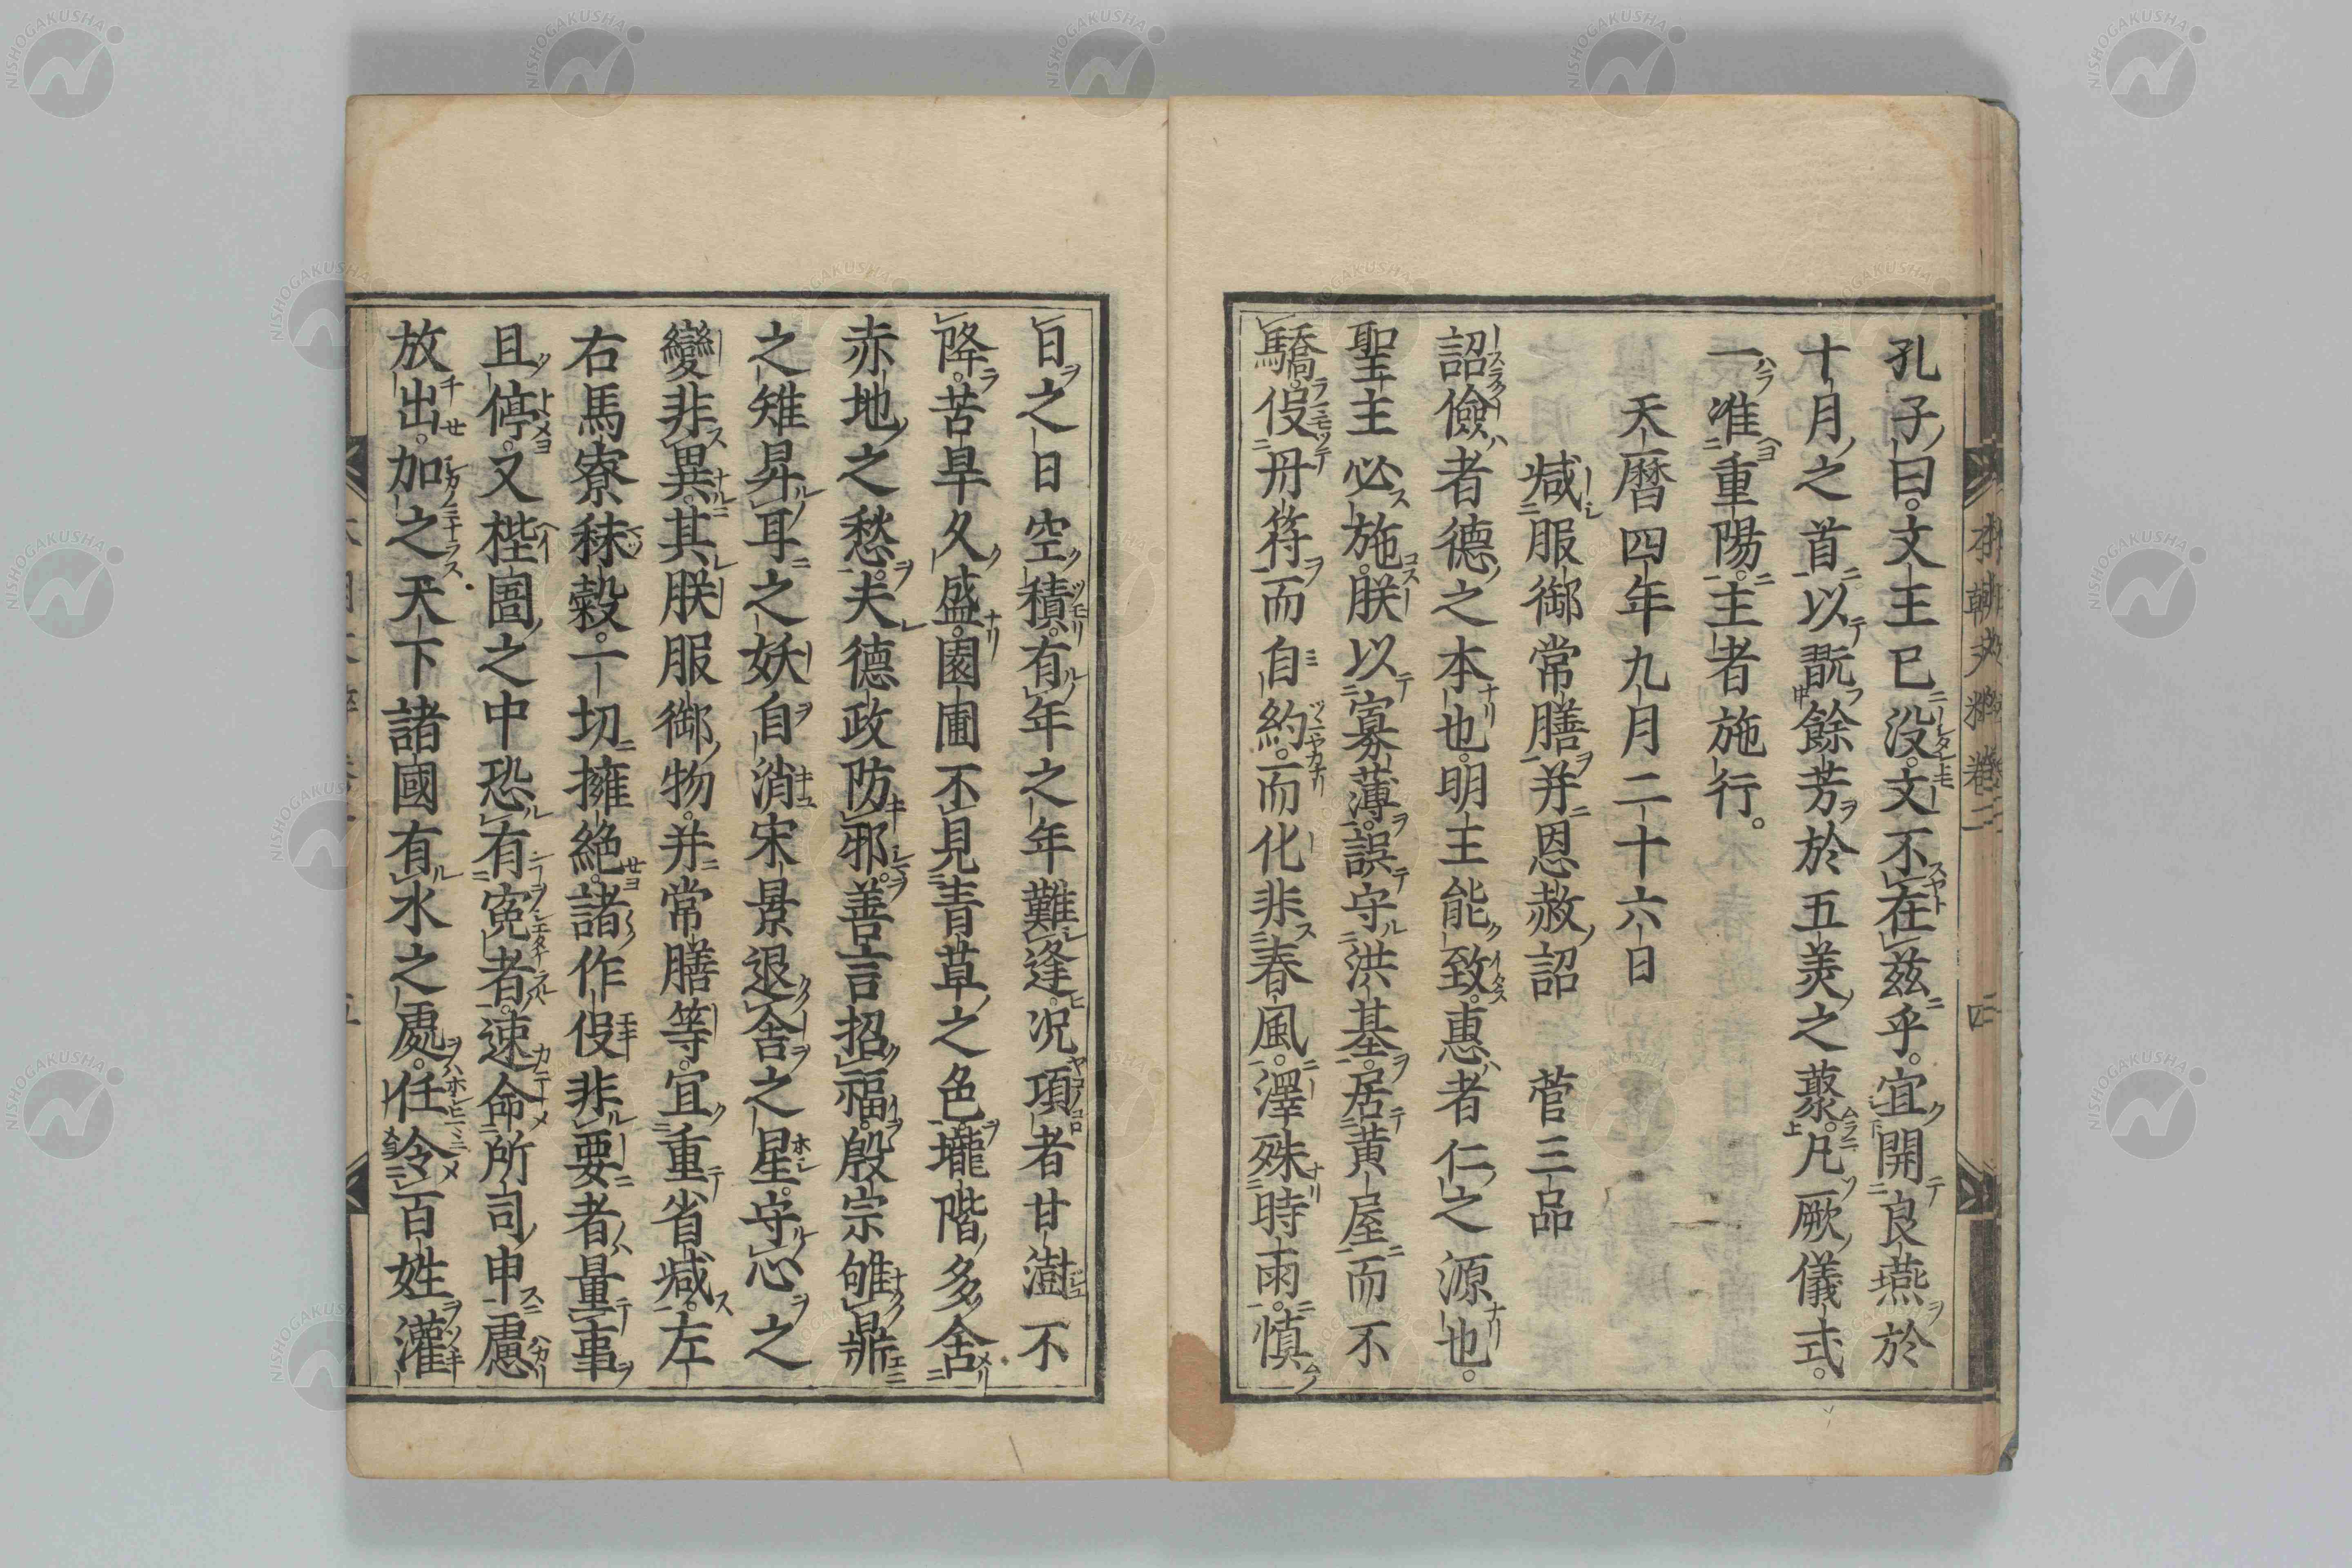 孔子曰。文王已没。文不在茲乎。宜開良燕於
十月之首以翫餘芳於五美之藂。凡厥儀式。
一准重陽。主者施行。
天曆四年九月二十六日
減服御常膳并恩赦詔 菅三品
詔儉者德之本也。明主能致。惠者仁之源也。
聖主必施。朕以寡薄。誤守洪基。居黃屋而不
驕。伇丹符而自約。而化非春風。澤殊時雨。慎
日之日空積。有年之年難逢。況項者甘澍不
降。苦旱久盛。園圃不見青草之色。壠階多舍
赤地之愁。夫德政防邪。善言招福。殷宗雊鼎
之雉昇耳之妖自消宋景退舍之星。守心之
變非異。其朕服御物。并常膳等。宜重省減。左
右馬寮秣穀。一切擁絕。諸作伇非要者量事
且停。又狴圄之中恐有寃者。速命所司申慮
放出。加之天下諸國有水之處。任令百姓灌
本朝文粹卷二 四
NISHOGAKUSHA